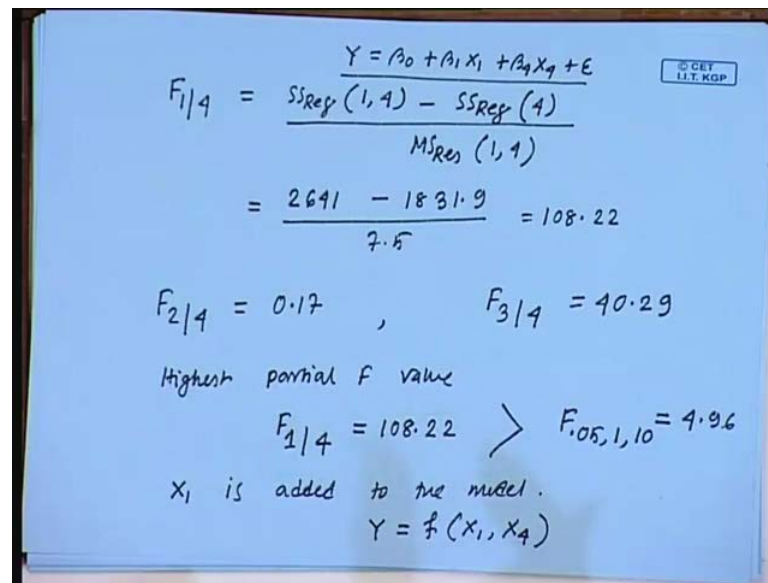 Y = β₀ + β₁ X₁ + β₄ X₄ + ε
© CET
I.I.T. KGP
F₁/₄ = SSReg (1,4) − SSReg (4)
MSRes (1,4)
= 2641 − 1831.9
7.5
= 108.22
F₂/₄ = 0.17 , F₃/₄ = 40.29
Highest partial F value
F₁/₄ = 108.22 > F.05,1,10 = 4.96
X₁ is added to the model.
Y = f (X₁, X₄)